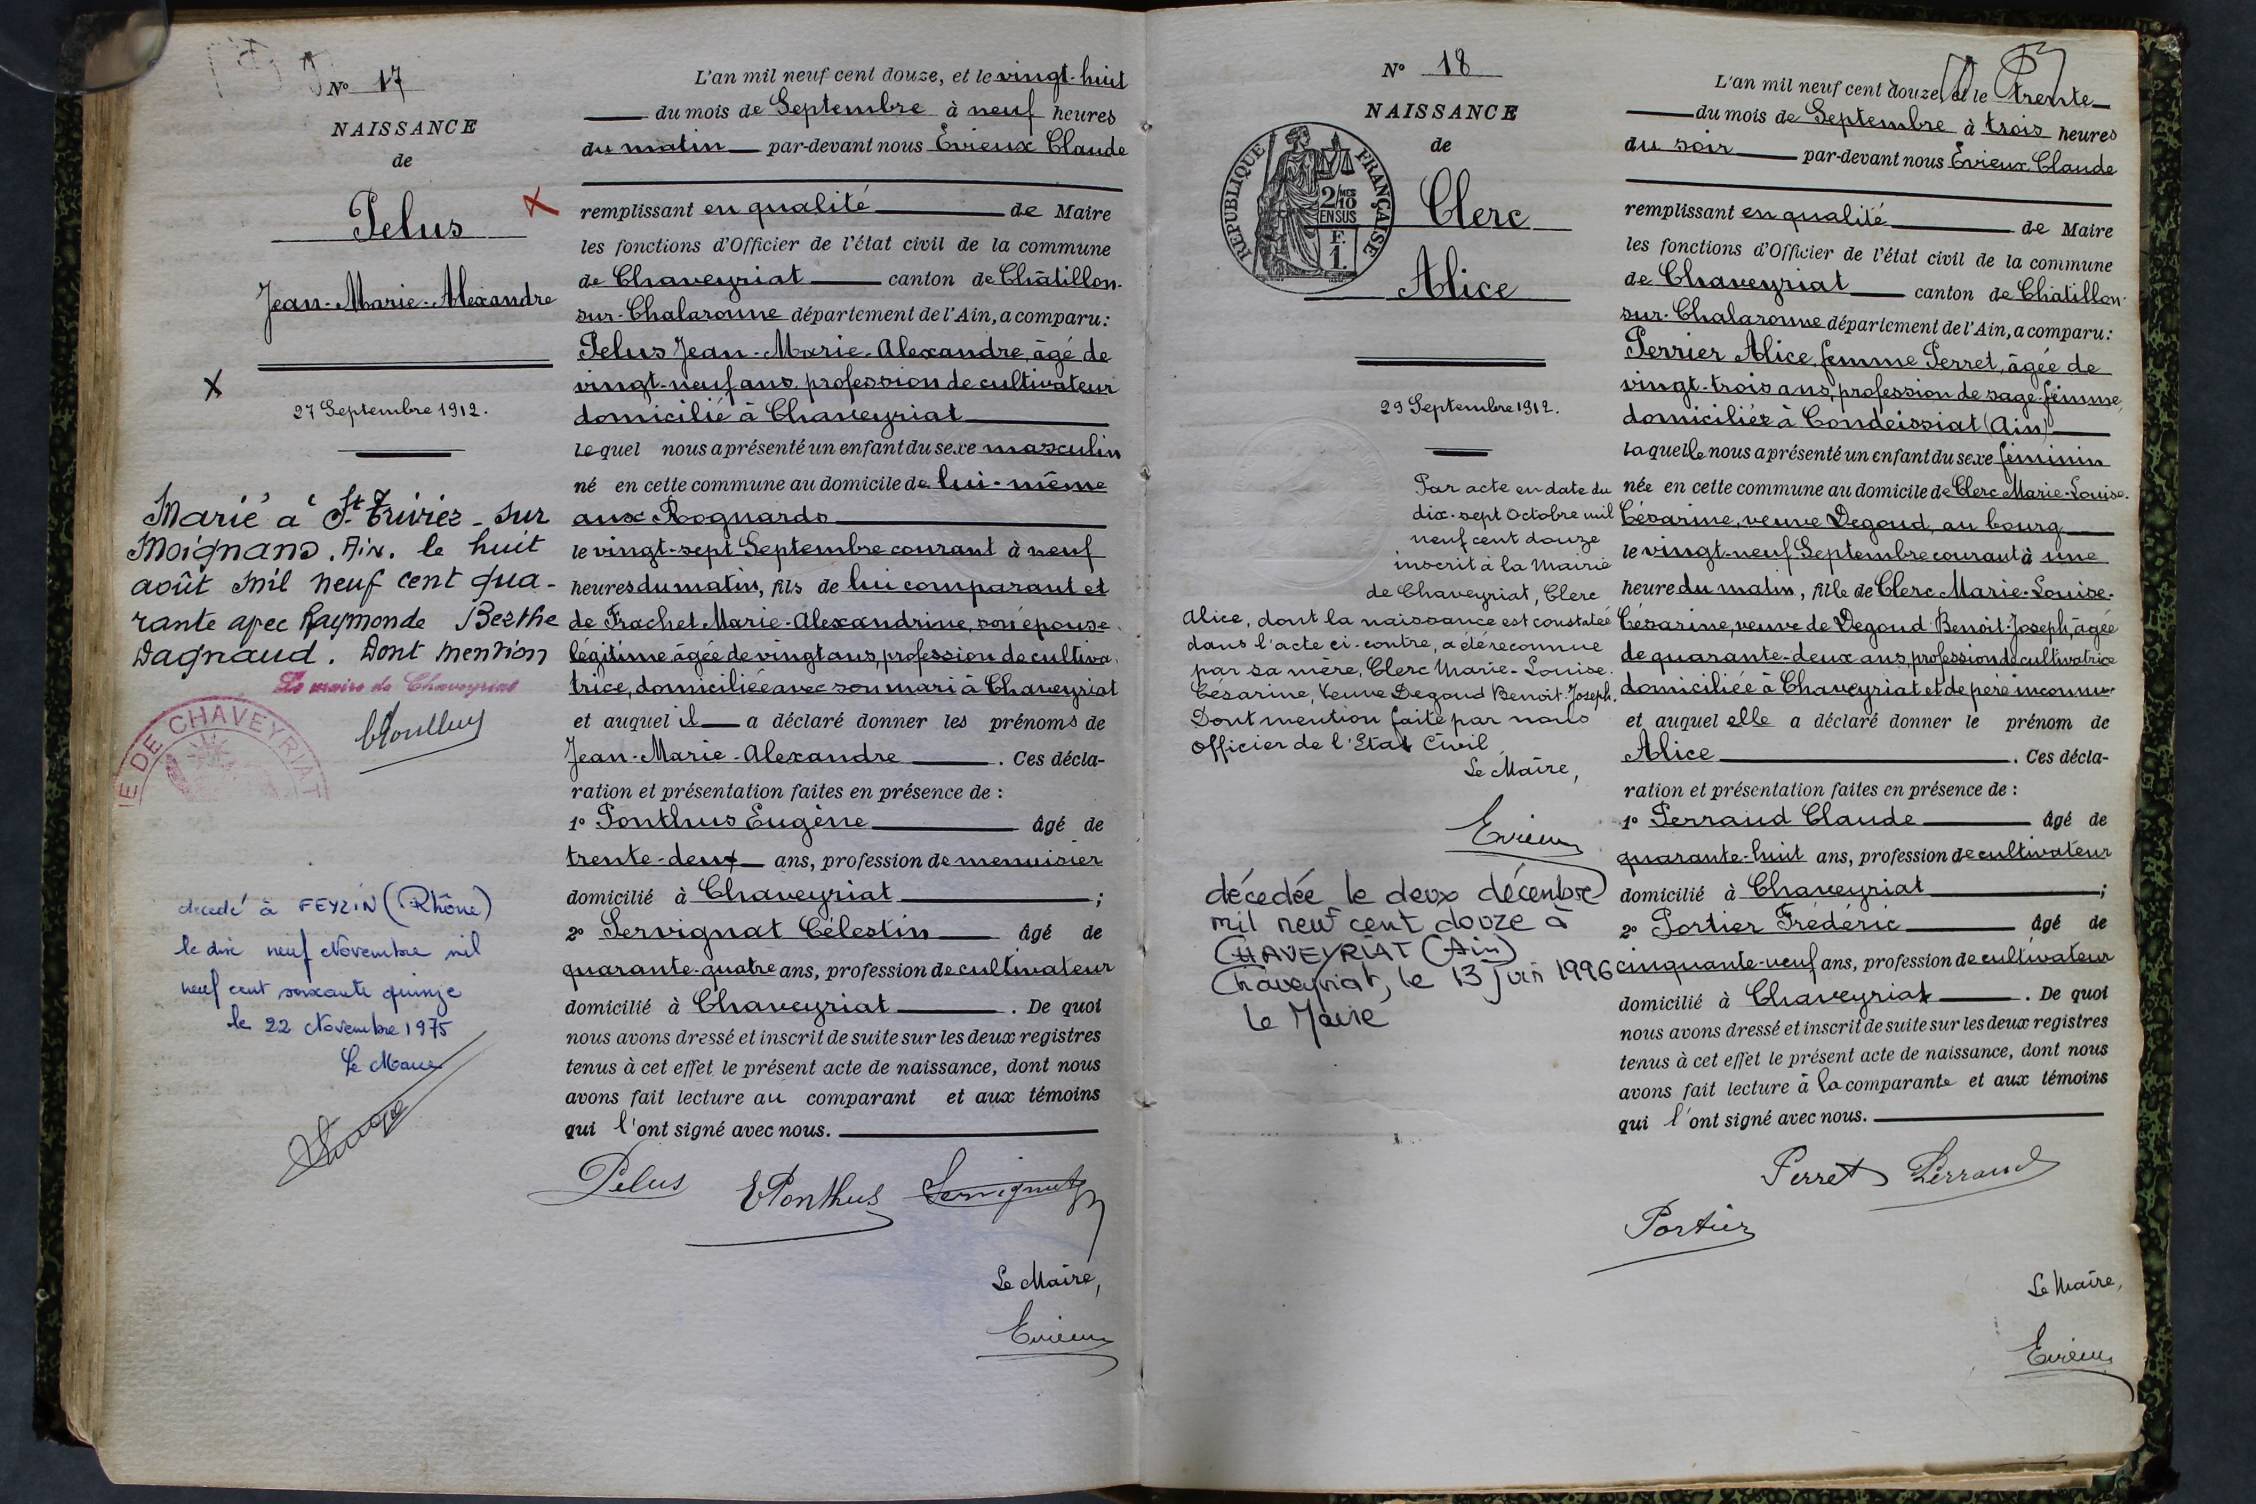 Nº 17
NAISSANCE
de
Pelus
Jean-Marie-Alexandre
27 Septembre 1912.
Marié à St-Trivier-sur
Moignans. Ain. le huit
août mil neuf cent qua-
rante avec Raymonde Berthe
Dagnaud. Dont mention
Le maire de Chaveyriat
IE DE CHAVEYRIAT
décédé à FEYZIN (Rhône)
le dix neuf Novembre mil
neuf cent soixante quinze
le 22 Novembre 1975
Le Maire
L'an mil neuf cent douze, et le vingt-huit
du mois de Septembre à neuf heures
du matin par-devant nous Evieux Claude
remplissant en qualité de Maire
les fonctions d'Officier de l'état civil de la commune
de Chaveyriat canton de Châtillon-
sur-Chalaronne département de l'Ain, a comparu:
Pelus Jean-Marie-Alexandre, âgé de
vingt-neuf ans, profession de cultivateur
domicilié à Chaveyriat
lequel nous a présenté un enfant du sexe masculin
né en cette commune au domicile de lui-même
aux Rognards
le vingt-sept Septembre courant à neuf
heures du matin, fils de lui comparant et
de Frachet Marie-Alexandrine, son épouse
légitime âgée de vingt ans, profession de cultiva-
trice, domiciliée avec son mari à Chaveyriat
et auquel il a déclaré donner les prénoms de
Jean-Marie-Alexandre. Ces décla-
ration et présentation faites en présence de :
1º Ponthus Eugène âgé de
trente-deux ans, profession de menuisier
domicilié à Chaveyriat ;
2º Servignat Célestin âgé de
quarante-quatre ans, profession de cultivateur
domicilié à Chaveyriat. De quoi
nous avons dressé et inscrit de suite sur les deux registres
tenus à cet effet le présent acte de naissance, dont nous
avons fait lecture au comparant et aux témoins
qui l'ont signé avec nous.
Pelus EPonthus Servignat
Le Maire,
Evieux
Nº 18
NAISSANCE
de
REPUBLIQUE FRANÇAISE
2/10 MES
EN SUS
F.
1.
Clerc
Alice
29 Septembre 1912.
Par acte en date du
dix-sept Octobre mil
neuf cent douze
inscrit à la Mairie
de Chaveyriat, Clerc
Alice, dont la naissance est constatée
dans l'acte ci-contre, a été reconnue
par sa mère, Clerc Marie-Louise.
Césarine, Veuve Degoud Benoit-Joseph.
Dont mention faite par nous
Officier de l'Etat Civil
Le Maire,
Evieux
décédée le deux décembre
mil neuf cent douze à
CHAVEYRIAT (Ain)
Chaveyriat, le 13 juin 1996
Le Maire
L'an mil neuf cent douze, et le trente
du mois de Septembre à trois heures
du soir par-devant nous Evieux Claude
remplissant en qualité de Maire
les fonctions d'Officier de l'état civil de la commune
de Chaveyriat canton de Châtillon-
sur-Chalaronne département de l'Ain, a comparu:
Perrier Alice, femme Perret, âgée de
vingt-trois ans, profession de sage-femme,
domiciliée à Condeissiat (Ain)
laquelle nous a présenté un enfant du sexe féminin
née en cette commune au domicile de Clerc Marie-Louise.
Césarine, veuve Degoud, au bourg
le vingt-neuf Septembre courant à une
heure du matin, fille de Clerc Marie-Louise-
Césarine, veuve de Degoud Benoit-Joseph, âgée
de quarante-deux ans, profession de cultivatrice
domiciliée à Chaveyriat et de père inconnu
et auquel elle a déclaré donner le prénom de
Alice. Ces décla-
ration et présentation faites en présence de :
1º Perraud Claude âgé de
quarante-huit ans, profession de cultivateur
domicilié à Chaveyriat ;
2º Portier Frédéric âgé de
cinquante-neuf ans, profession de cultivateur
domicilié à Chaveyriat. De quoi
nous avons dressé et inscrit de suite sur les deux registres
tenus à cet effet le présent acte de naissance, dont nous
avons fait lecture à la comparante et aux témoins
qui l'ont signé avec nous.
Perret Perraud
Portier
Le Maire,
Evieux